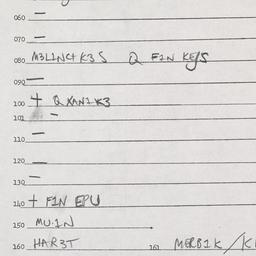 060 —
070 —
080 M3LINCT K3S Q FIN KE/S
090 —
100 + Q XANIK3
101 —
110 —
120 —
130 —
140 + FIN EPU
150 MU.IN
160 HAR3T 161 MERBIK/KI